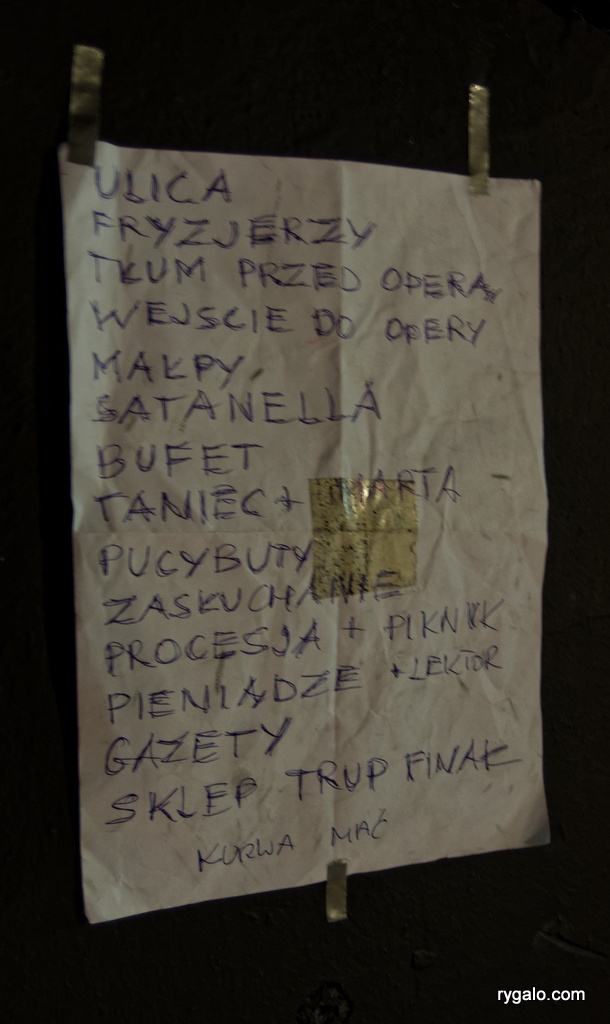 ULICA
FRYZJERZY
TŁUM PRZED OPERĄ
WEJŚCIE DO OPERY
MAŁPY
SATANELLA
BUFET
TANIEC + MARTA
PUCYBUTY
ZASŁUCHANIE
PROCESJA + PIKNIK
PIENIĄDZE + LEKTOR
GAZETY
SKLEP TRUP FINAŁ
KURWA MAĆ
rygalo.com